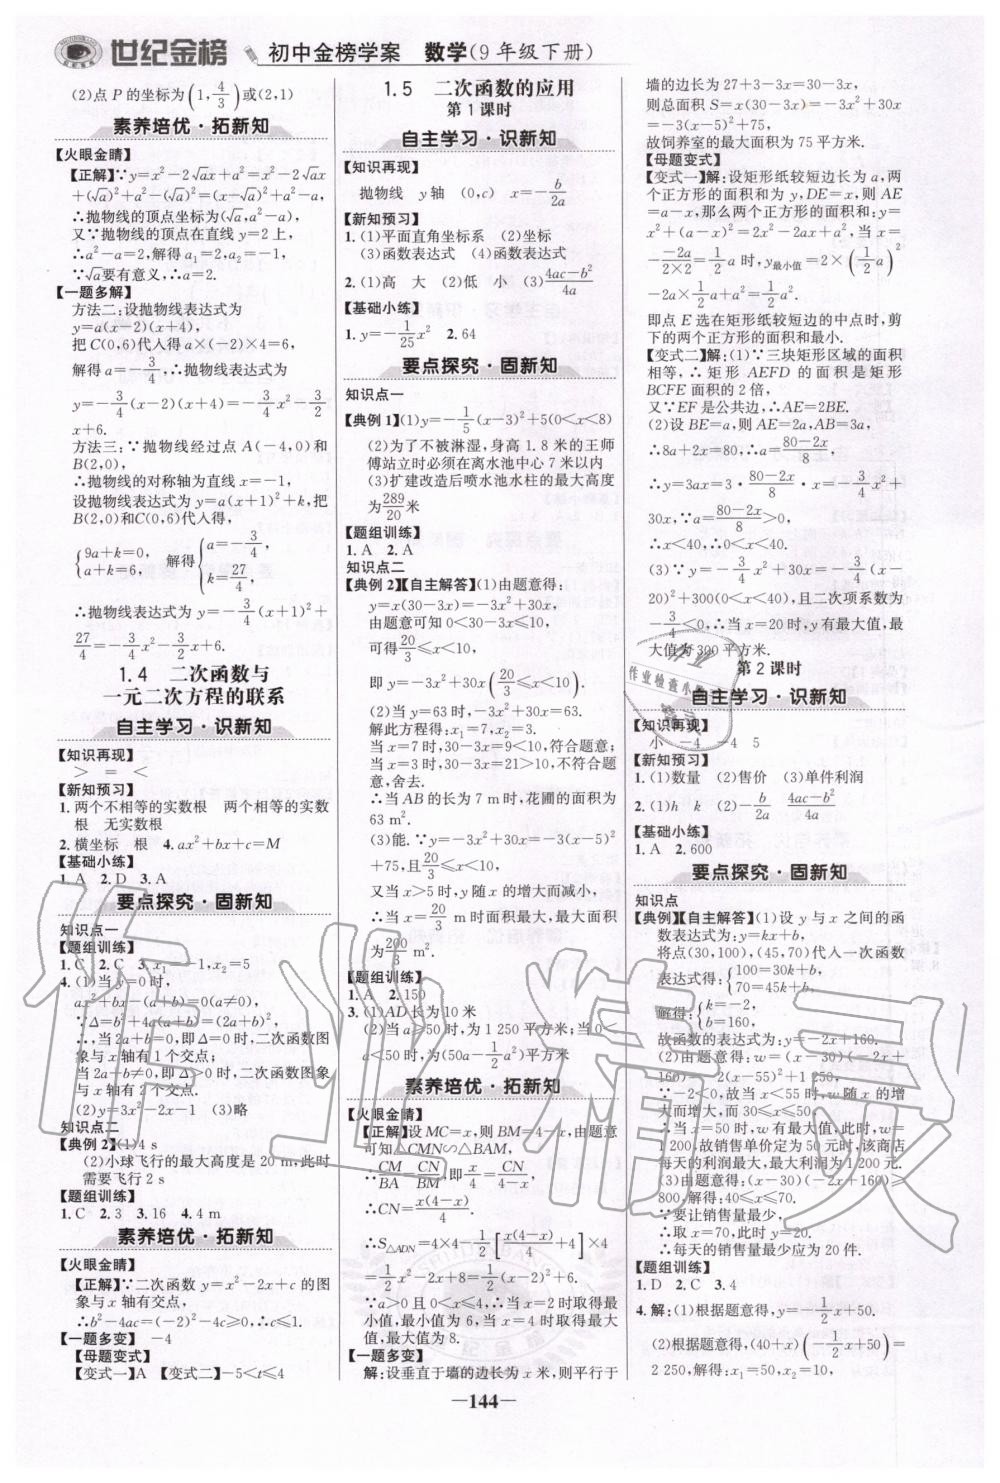 世纪金榜 初中金榜学案 数学(9年级下册)
(2)点 P 的坐标为(1,4/3)或(2,1)
素养培优·拓新知
【火眼金睛】
【正解】∵y=x²-2√ax+a²=x²-2√ax
+(√a)²+a²-(√a)²=(x-√a)²+a²-a,
∴抛物线的顶点坐标为(√a,a²-a),
又∵抛物线的顶点在直线 y=2 上,
∴a²-a=2,解得 a₁=2,a₂=-1,
∵√a要有意义,∴a=2.
【一题多解】
方法二:设抛物线表达式为
y=a(x-2)(x+4),
把 C(0,6)代入得 a×(-2)×4=6,
解得 a=-3/4,∴抛物线表达式为
y=-3/4(x-2)(x+4)=-3/4x²-3/2
x+6.
方法三:∵抛物线经过点 A(-4,0)和
B(2,0),
∴抛物线的对称轴为直线 x=-1,
设抛物线表达式为 y=a(x+1)²+k,把
B(2,0)和C(0,6)代入得,
{9a+k=0, a+k=6, 解得{a=-3/4, k=27/4,
∴抛物线表达式为 y=-3/4(x+1)²+
27/4=-3/4x²-3/2x+6.
1.4 二次函数与
一元二次方程的联系
自主学习·识新知
【知识再现】
> = <
【新知预习】
1.两个不相等的实数根 两个相等的实数
根 无实数根
2.横坐标 根 4.ax²+bx+c=M
【基础小练】
1.A 2.D 3.A
要点探究·固新知
知识点一
【题组训练】
1.C 2.C 3.x₁=-1,x₂=5
4.(1)当 y=0 时,
ax²+bx-(a+b)=0(a≠0),
∵Δ=b²+4a(a+b)=(2a+b)²,
∴,当 2a+b=0,即Δ=0时,二次函数图
象与 x 轴有 1 个交点;
当 2a+b≠0,即Δ>0时,二次函数图象
与 x 轴有 2 个交点.
(2)y=3x²-2x-1 (3)略
知识点二
【典例 2】(1)4 s
(2)小球飞行的最大高度是 20 m,此时
需要飞行 2 s
【题组训练】
1.C 2.3 3.16 4.4 m
素养培优·拓新知
【火眼金睛】
【正解】∵二次函数 y=x²-2x+c 的图
象与 x 轴有交点,
∴b²-4ac=(-2)²-4c≥0,∴c≤1.
【一题多变】 -4
【母题变式】
【变式一】A 【变式二】-5<t≤4
1.5 二次函数的应用
第 1 课时
自主学习·识新知
【知识再现】
抛物线 y 轴 (0,c) x=-b/2a
【新知预习】
1.(1)平面直角坐标系 (2)坐标
(3)函数表达式 (4)函数表达式
2.(1)高 大 (2)低 小 (3)(4ac-b²)/4a
【基础小练】
1.y=-1/25x² 2.64
要点探究·固新知
知识点一
【典例 1】(1)y=-1/5(x-3)²+5(0<x<8)
(2)为了不被淋湿,身高 1.8 米的王师
傅站立时必须在离水池中心 7 米以内
(3)扩建改造后喷水池水柱的最大高度
为289/20米
【题组训练】
1.A 2.A
知识点二
【典例 2】【自主解答】(1)由题意得:
y=x(30-3x)=-3x²+30x,
由题意可知 0<30-3x≤10,
可得20/3≤x<10,
即 y=-3x²+30x(20/3≤x<10).
(2)当 y=63 时,-3x²+30x=63.
解此方程得:x₁=7,x₂=3.
当 x=7 时,30-3x=9<10,符合题意;
当 x=3 时,30-3x=21>10,不符合题
意,舍去.
∴当 AB 的长为 7 m 时,花圃的面积为
63 m².
(3)能.∵y=-3x²+30x=-3(x-5)²
+75,且20/3≤x<10,
又当 x>5 时,y 随 x 的增大而减小,
∴当 x=20/3 m 时面积最大,最大面积
为200/3 m².
【题组训练】
1.A 2.150
3.(1)AD 长为 10 米
(2)当 a≥50 时,为 1 250 平方米;当 0<
a<50 时,为(50a-1/2a²)平方米
素养培优·拓新知
【火眼金睛】
【正解】设 MC=x,则 BM=4-x,由题意
可知△CMN∽△BAM,
∴CM/BA=CN/BM,即x/4=CN/(4-x),
∴CN=x(4-x)/4.
∴S△ADN=4×4-1/2[x(4-x)/4+4]×4
=1/2x²-2x+8=1/2(x-2)²+6.
∵a>0 且 0<x≤4,∴当 x=2 时取得最
小值,最小值为 6,当 x=4 时取得最大
值,最大值为 8.
【一题多变】
解:设垂直于墙的边长为 x 米,则平行于
墙的边长为 27+3-3x=30-3x,
则总面积 S=x(30-3x)=-3x²+30x
=-3(x-5)²+75,
故饲养室的最大面积为 75 平方米.
【母题变式】
【变式一】解:设矩形纸较短边长为 a,两
个正方形的面积和为 y,DE=x,则 AE
=a-x,那么两个正方形的面积和:y=
x²+(a-x)²=2x²-2ax+a²,当 x=
-(-2a)/(2×2)=1/2a 时,y最小值=2×(1/2a)²
-2a×1/2a+a²=1/2a².
即点 E 选在矩形纸较短边的中点时,剪
下的两个正方形的面积和最小.
【变式二】解:(1)∵三块矩形区域的面积
相等,∴矩形 AEFD 的面积是矩形
BCFE 面积的 2 倍,
又∵EF 是公共边,∴AE=2BE.
(2)设 BE=a,则 AE=2a,AB=3a,
∴8a+2x=80,∴a=(80-2x)/8,
∴y=3ax=3·(80-2x)/8·x=-3/4x²+
30x,∵a=(80-2x)/8>0,
∴x<40,∴0<x<40.
(3)∵y=-3/4x²+30x=-3/4(x-
20)²+300(0<x<40),且二次项系数为
-3/4<0,∴当 x=20 时,y 有最大值,最
大值为 300 平方米.
第 2 课时
自主学习·识新知
【知识再现】
小 -4 -4 5
【新知预习】
1.(1)数量 (2)售价 (3)单件利润
2.(1)h k (2)-b/2a (4ac-b²)/4a
【基础小练】
1.A 2.600
要点探究·固新知
知识点
【典例】【自主解答】(1)设 y 与 x 之间的函
数表达式为:y=kx+b,
将点(30,100),(45,70)代入一次函数
表达式得:{100=30k+b, 70=45k+b,
解得:{k=-2, b=160,
故函数的表达式为:y=-2x+160.
(2)由题意得:w=(x-30)(-2x+
160)=-2(x-55)²+1 250,
∵-2<0,故当 x<55 时,w 随 x 的增
大而增大,而 30≤x≤50,
∴当 x=50 时,w 有最大值,此时,w=
1 200,故销售单价定为 50 元时,该商店
每天的利润最大,最大利润为 1 200 元.
(3)由题意得:(x-30)(-2x+160)≥
800,解得:40≤x≤70.
∵要让销售量最大,
∴取 x=70,此时 y=20.
∴每天的销售量最少应为 20 件.
【题组训练】
1.D 2.C 3.4
4.解:(1)根据题意得,y=-1/2x+50.
(2)根据题意得,(40+x)(-1/2x+50)=
2 250,解得:x₁=50,x₂=10,
—144—
作业检查小
作业精灵